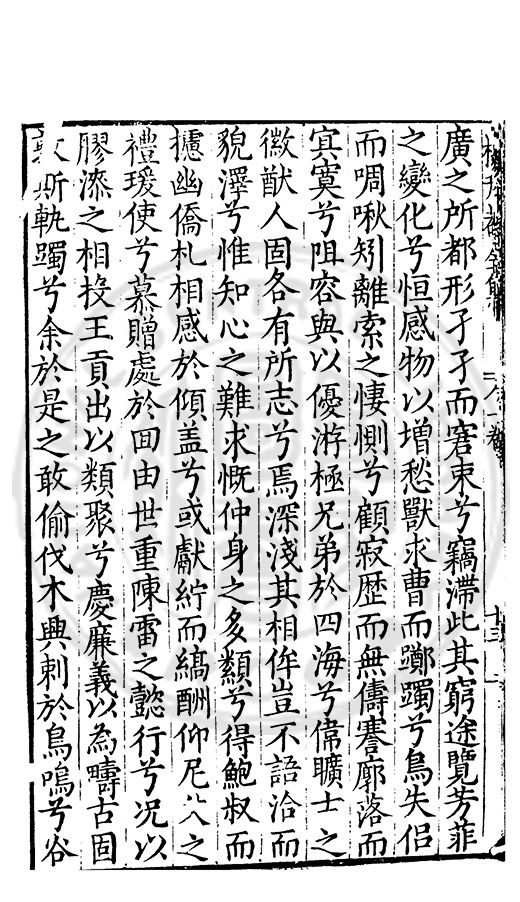 廣之所都形孑孑而窘束兮竊滯此其窮途覽芳菲
之變化兮恒感物以增愁獸求曹而躑躅兮鳥失侣
而啁啾矧離索之悽惻兮顧寂歴而無儔謇廓落而
㝠寞兮阻容與以優游極兄弟於四海兮常曠士之
徽猷人固各有所志兮焉深淺其相侔豈不語洽而
貌澤兮惟知心之難求慨仲身之多纇兮得鮑叔而
攄幽僑札相感於傾盖兮或獻紵而縞酬仰尼父之
禮瑗使兮慕贈處於回由世重陳雷之懿行兮况以
膠漆之相投王貢出以類聚兮慶廉義以為疇古固
斯軌躅兮余於是之敢偷伐木興刺於鳥鳴兮谷
十三